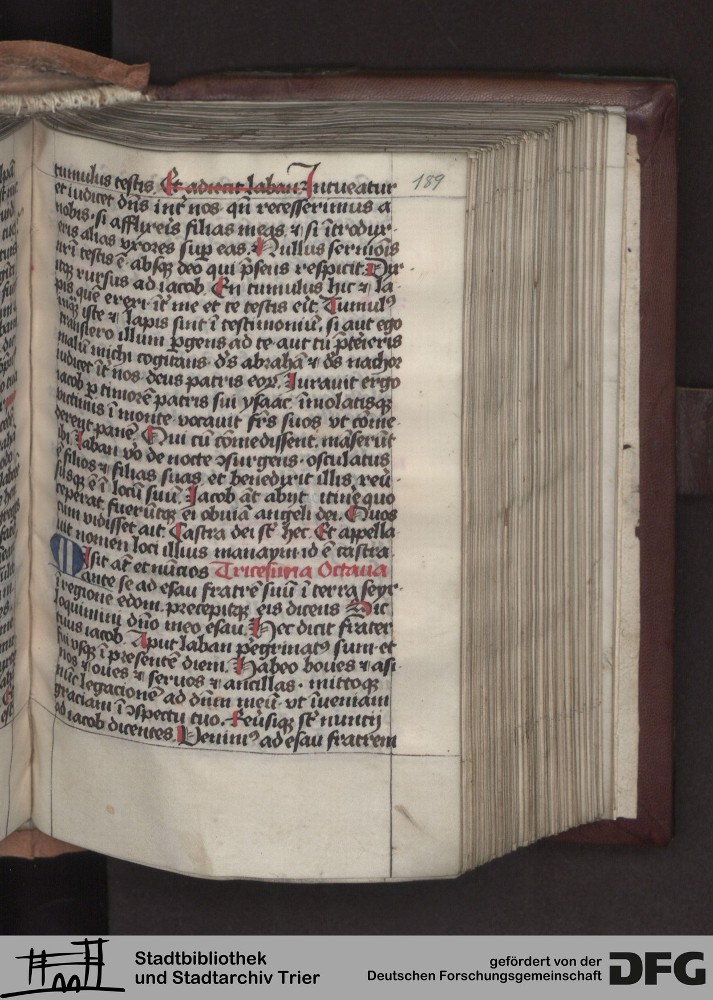 189
tumulus testis. Et adiecit laban Intueatur
et iudicet dns int nos qn recesserimus a
nobis. si afflixeris filias meas ⁊ si itrodux-
eris alias vxores sup eas. Nullus sermois
nri testis ē absqꝫ deo qui psens respicit. Dix-
itqꝫ rursus ad iacob. En tumulus hic ⁊ la-
pis quē erexi īt me et te testis eīt. Tumulꝰ
inqꝫ iste ⁊ lapis sint ī testimoniū. si aut ego
transiero illum pgens ad te aut tu pteieris
malū michi cogitans. ds abrahā ⁊ ds nachor
iudicet īt nos deus patris eoꝝ. Iurauit ergo
iacob p timorē patris sui ysaac. īmolatisqꝫ
victimis ī monte vocauit frs suos vt come-
derent panē. Qui cū comedissent. māserūt
ibi. Laban vo de nocte ↄsurgens. osculatus
ē filios ⁊ filias suas et benedixit illis. reu-
susqꝫ ē ī locū suū. Iacob at abijt itinē quo
ceperat. fuerūtqꝫ ei obuiā angeli dei. Quos
cum vidisset ait. Castra dei st hec. Et appella
uit nomen loci illius manaym id ē castra.
Misit at et nūcios Tricesima Octaua
ante se ad esau fratrē suū ī terrā seyr
ī regione edom. precepitqꝫ eis dicens Sic
loquimini dno meo esau. Hec dicit frater
tuus iacob. Aput laban pegrinatꝰ sum et
fui vsqꝫ ī presentē diem. Habeo boues ⁊ asi-
nos ⁊ oues ⁊ seruos ⁊ ancillas. mittoqꝫ
nūc legacionē ad dnm meū. vt īueniam
graciam ī ↄspectu tuo. Reūsiqꝫ st nuntij
ad iacob dicentes. Venimꝰ ad esau fratrem
Stadtbibliothek
und Stadtarchiv Trier
gefördert von der
Deutschen Forschungsgemeinschaft
DFG